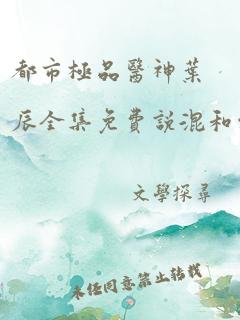 都市極品醫神葉
辰全集免費說混和
文學探尋
未經同意禁止轉載